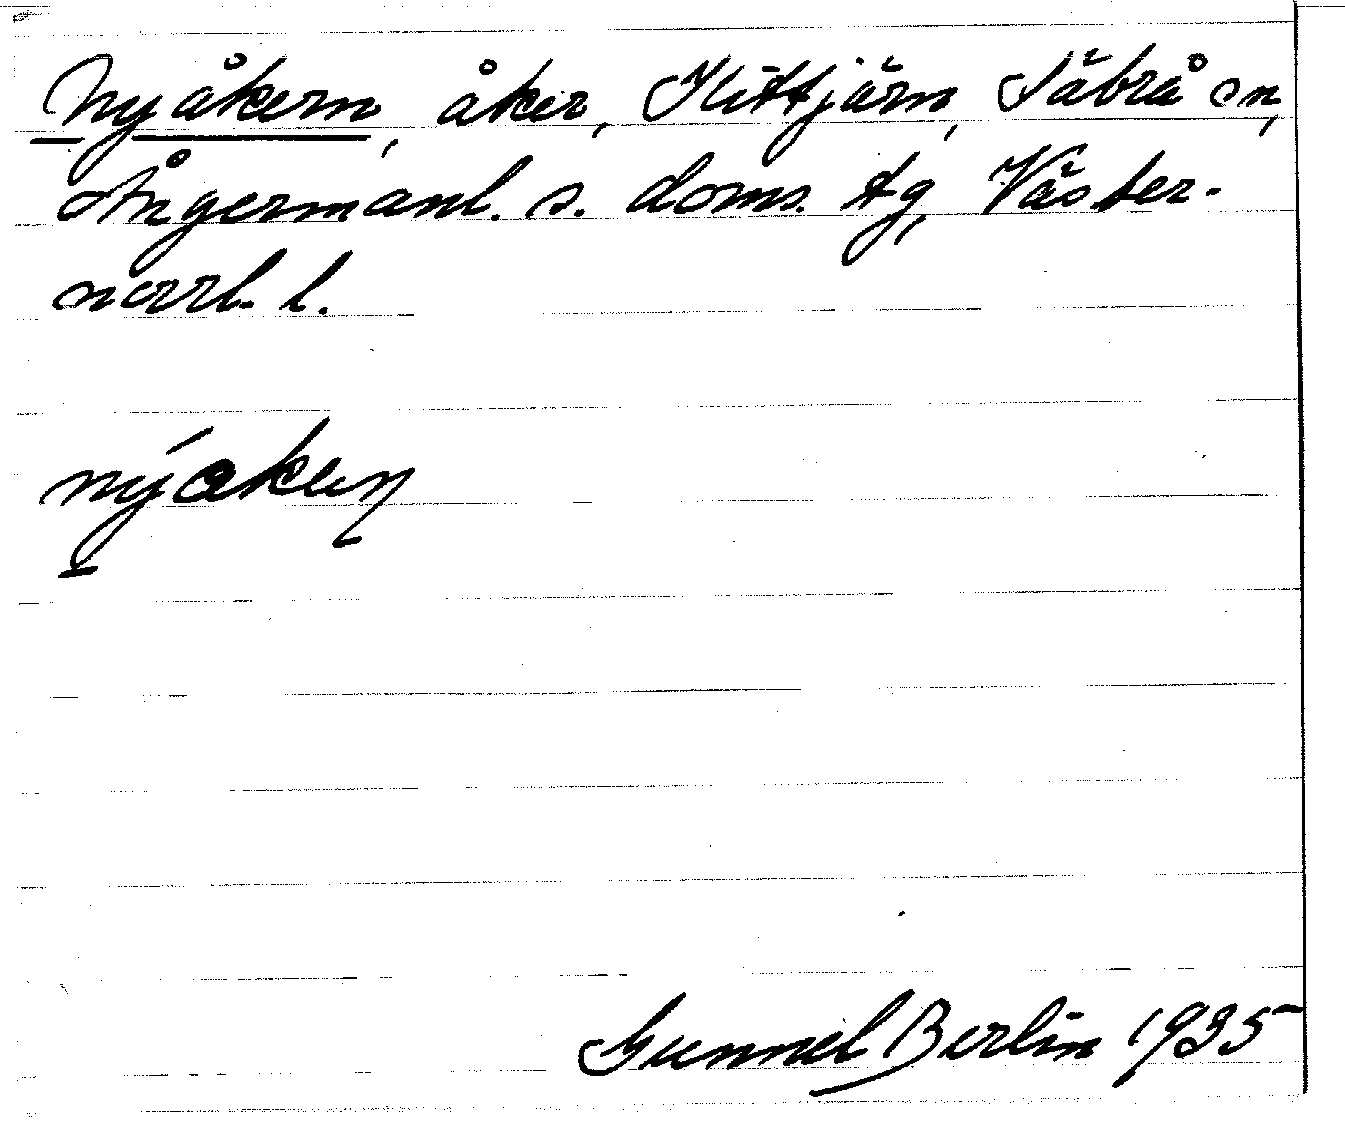 Nyåkern, åker, Hittjärn, Säbrå sn,
Ångermanl. s. doms. tg, Väster-
norrl. l.
nýakeɳ
Gunnel Berlin 1935